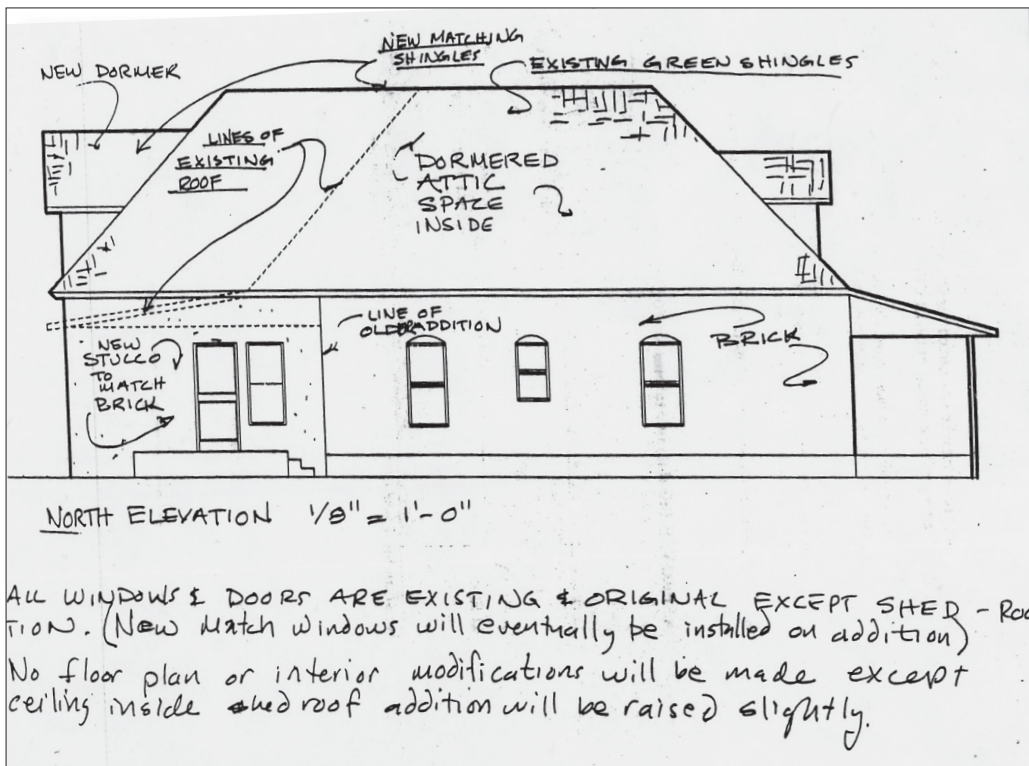 NEW MATCHING
SHINGLES
NEW DORMER
EXISTING GREEN SHINGLES
LINES OF
EXISTING
ROOF
DORMERED
ATTIC
SPACE
INSIDE
LINE OF
OLDER ADDITION
BRICK
NEW
STUCCO
TO
MATCH
BRICK
NORTH ELEVATION 1/8" = 1'-0"
ALL WINDOWS & DOORS ARE EXISTING & ORIGINAL EXCEPT SHED - ROO
TION. (New Match windows will eventually be installed on addition)
No floor plan or interior modifications will be made except
ceiling inside shed roof addition will be raised slightly.